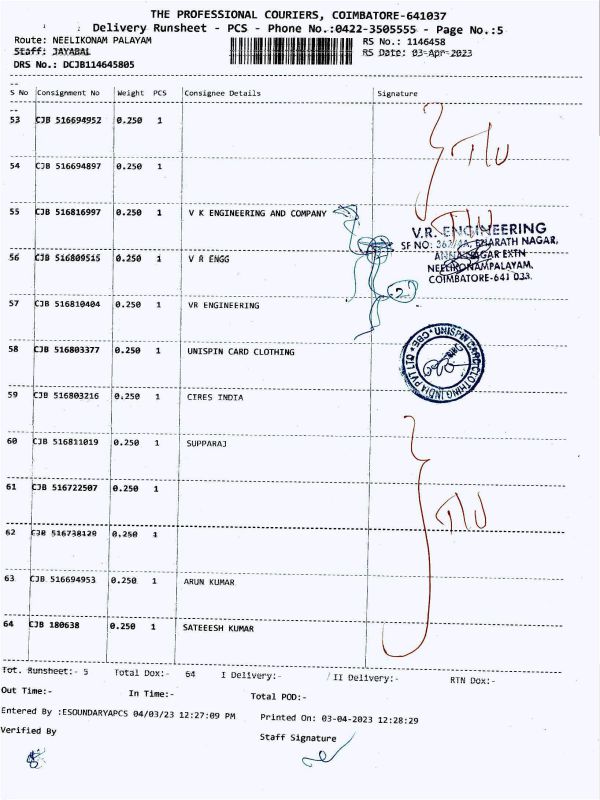 THE PROFESSIONAL COURIERS, COIMBATORE-641037
Delivery Runsheet - PCS - Phone No.:0422-3505555 - Page No.:5
Route: NEELIKONAM PALAYAM RS No.: 1146458
Staff: JAYABAL RS Date: 03-Apr-2023
DRS No.: DCJB114645805
S No Consignment No Weight PCS Consignee Details Signature
53 CJB 516694952 0.250 1
54 CJB 516694897 0.250 1
55 CJB 516816997 0.250 1 V K ENGINEERING AND COMPANY
V.R. ENGINEERING
SF NO: 362/4A, BHARATH NAGAR,
ANNA NAGAR EXTN
NEELIKONAMPALAYAM,
COIMBATORE-641 033.
56 CJB 516809515 0.250 1 V R ENGG
2
57 CJB 516810404 0.250 1 VR ENGINEERING
58 CJB 516803377 0.250 1 UNISPIN CARD CLOTHING
UNISPIN CARD CLOTHING INDIA PVT LTD * CBE *
59 CJB 516803216 0.250 1 CIRES INDIA
60 CJB 516811019 0.250 1 SUPPARAJ
61 CJB 516722507 0.250 1
62 CJB 516738120 0.250 1
63 CJB 516694953 0.250 1 ARUN KUMAR
64 CJB 180638 0.250 1 SATEEESH KUMAR
Tot. Runsheet:- 5 Total Dox:- 64 I Delivery:- II Delivery:- RTN Dox:-
Out Time:- In Time:- Total POD:-
Entered By :ESOUNDARYAPCS 04/03/23 12:27:09 PM Printed On: 03-04-2023 12:28:29
Verified By Staff Signature